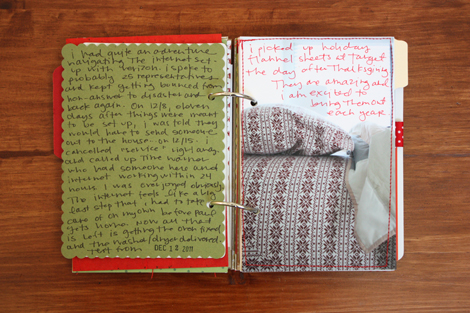 i had quite an adventure
navigating the internet set-
up with verizon. i spoke to
probably 25 representatives
and kept getting bounced from
non-answer to disaster and
back again. on 12/8, eleven
days after things were meant
to be set up, i was told they
would have to send someone
out to the house on 12/15. i
cancelled "service" right away
and called up time warner
who had someone here and
internet working within 24
hours. i was overjoyed obviously.
the internet feels like a big
last step that i had to take
care of on my own before Paul
gets home. now all that
is left is getting the oven fixed
and the washer/dryer delivered
DEC 12 2011
i picked up holiday
flannel sheets at target
the day after thanksgiving
they are amazing and
i am excited to
bring them out
each year.